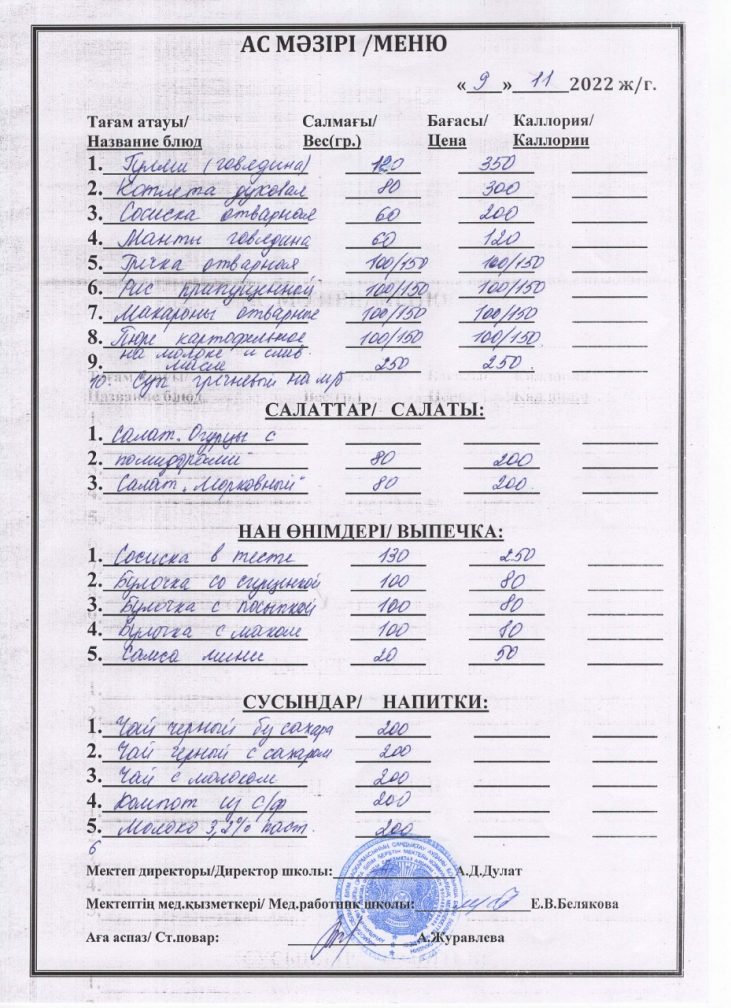 АС МӘЗІРІ /МЕНЮ
« 9 » 11 2022 ж/г.
Тағам атауы/ Салмағы/ Бағасы/ Каллория/
Название блюд Вес(гр.) Цена Каллории
1. Гуляш (говядина) 120 350
2. Котлета духовая 80 300
3. Сосиска отварная 60 200
4. Манты говядина 60 120
5. Гречка отварная 100/150 100/150
6. Рис припущенный 100/150 100/150
7. Макароны отварные 100/150 100/150
8. Пюре картофельное 100/150 100/150
на молоке и слив.
9. масле 250 250
10. Суп гречневый на м/б
САЛАТТАР/ САЛАТЫ:
1. Салат. Огурцы с
2. помидорами 80 200
3. Салат „Морковный" 80 200
НАН ӨНІМДЕРІ/ ВЫПЕЧКА:
1. Сосиска в тесте 130 250
2. Булочка со сгущенкой 100 80
3. Булочка с посыпкой 100 80
4. Булочка с маком 100 80
5. Самса мини 20 50
СУСЫНДАР/ НАПИТКИ:
1. Чай черный без сахара 200
2. Чай черный с сахаром 200
3. Чай с молоком 200
4. Компот из с/ф 200
5. Молоко 3,2% паст. 200
6
Мектеп директоры/Директор школы: А.Д.Дулат
Мектептің мед.қызметкері/ Мед.работник школы: Е.В.Белякова
Аға аспаз/ Ст.повар: А.Журавлева